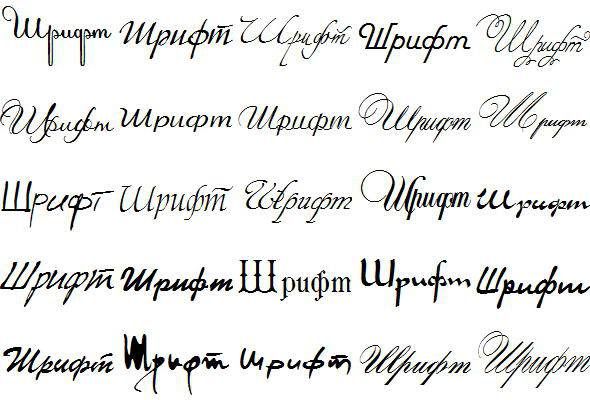 Шрифт Шрифт Шрифт Шрифт Шрифт
Шрифт Шрифт Шрифт Шрифт Шрифт
Шрифт Шрифт Шрифт Шрифт Шрифт
Шрифт Шрифт Шрифт Шрифт Шрифт
Шрифт Шрифт Шрифт Шрифт Шрифт